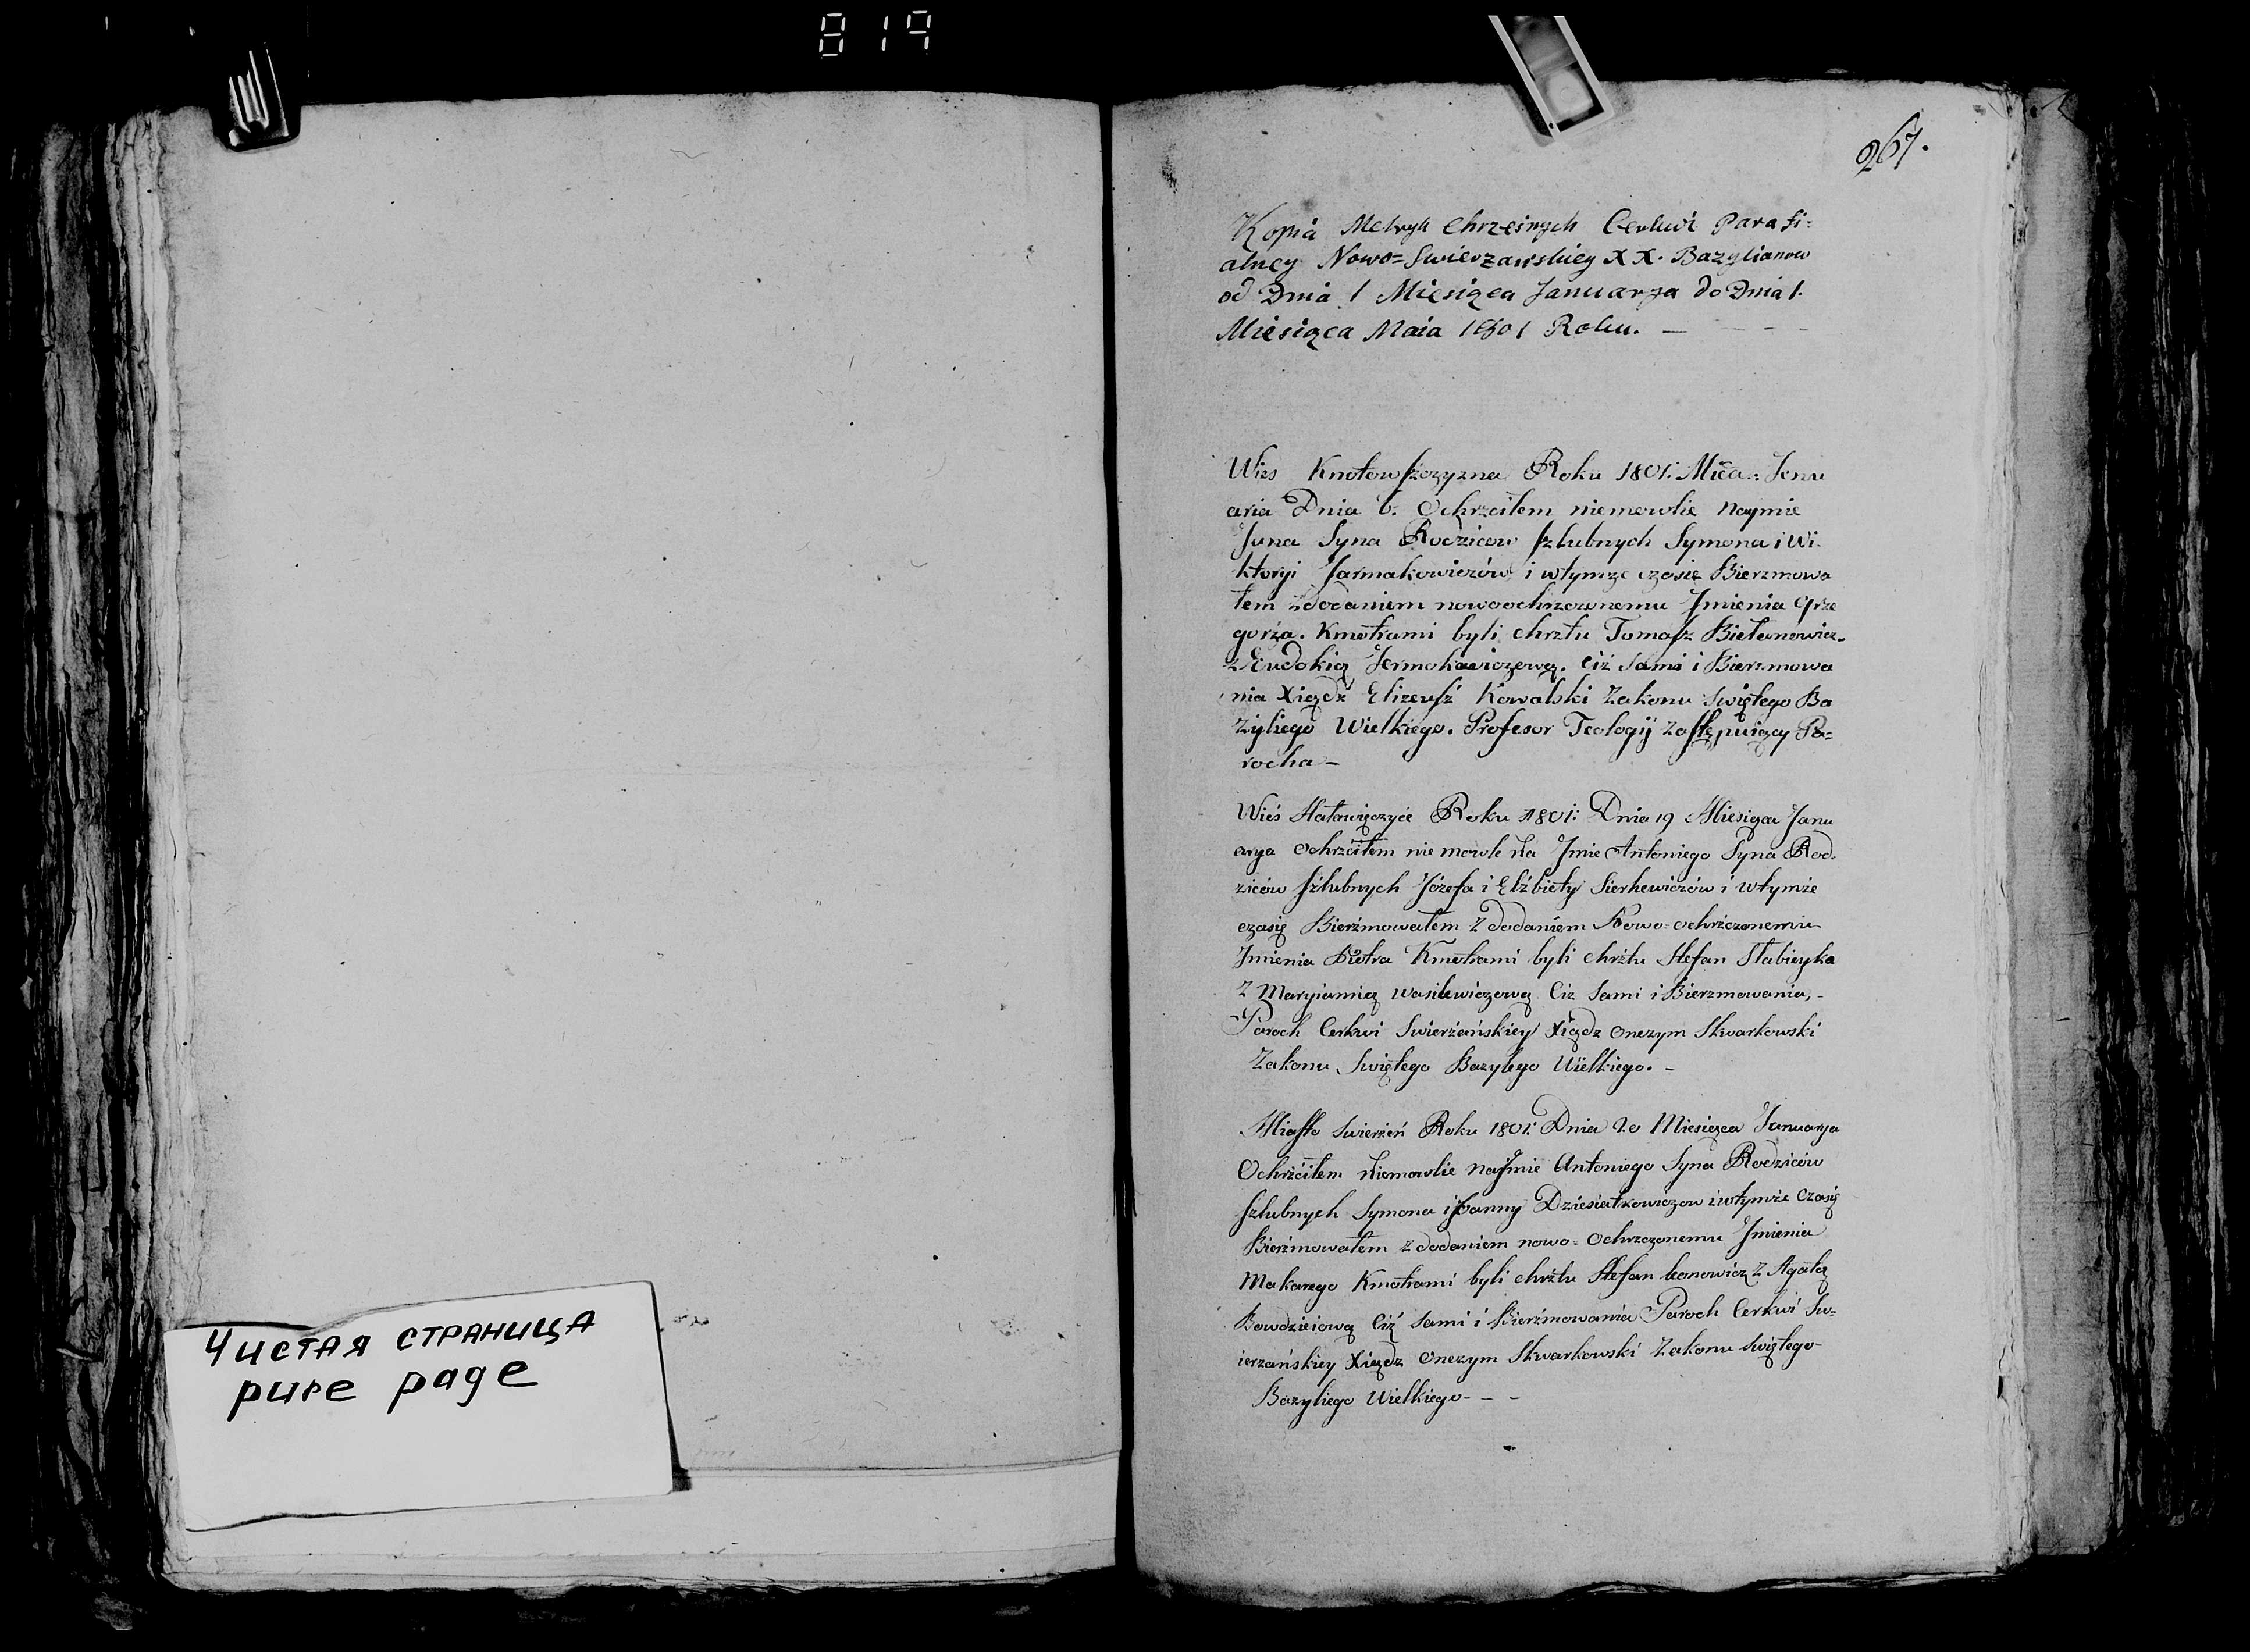 819
Чистая страница
pure page
267.
Kopia Metryk Chrzesnych Cerkwi Parafi=
alney Nowo=Swierzanskiey XX. Bazylianow
od Dnia 1 Miesiąca Januarya do Dnia 1.
Miesiąca Maia 1801 Roku. —
Wies Knotowszczyzna Roku 1801. Mca: Janu
aria Dnia 6: Ochrzciłem niemowlie Naymie
Jana Syna Rodzicow szlubnych Symona i Wi-
ktoryi Jarmakowiczów i wtymże czasie Bierzmowa
łem zdodaniem nowoochrzczonemu Jmienia Grze
gorza. Kmotrami byli chrztu Tomasz Bielanowicz
z Eudokią Jermakowiczową. Ciż Sami i Bierzmowa
nia Xiądz Elizeusz Kowalski Zakonu Swiętego Ba
zyliego Wielkiego. Profesor Teologij Zastępuiący Pa=
rocha —
Wieś Hatowięzyce Roku 1801: Dnia 19 Miesiąca Janu
arya ochrzciłem niemowle Na Jmie Antoniego Syna Rod-
ziców szlubnych Józefa i Elżbiety Sierhewiczów i wtymże
czasię Bierżmowałem z dodaniem Nowo=ochrzczonemu
Jmienia Piotra Kmotrami byli chrztu Stefan Słabiyka
z Maryianną Wasilewiczową Ciż Sami i Bierzmowania, -
Paroch Cerkwi Swierżańskiey Xiądz Onezym Skwarkowski
Zakonu Swiętego Bazylego Wielkiego. -
Miasto Swierżeń Roku 1801: Dnia 20 Miesiąca Januarya
Ochrzciłem Niemowlie najmie Antoniego Syna Rodziców
szlubnych Symona i Hanny Dziesiatkowiczow i wtymże Czasię
Bierżmowałem z dodaniem nowo=Ochrzczonemu Jmienia
Makarego Kmotrami byli chrztu Stefan Leonowicz Z Agatą
Bowdzieiową Ciż Sami i Bierżmowania Paroch Cerkwi Sw=
ierzańskiey Xiądz Onezym Skwarkowski Zakonu Swiętego
Bazyliego Wielkiego - - -